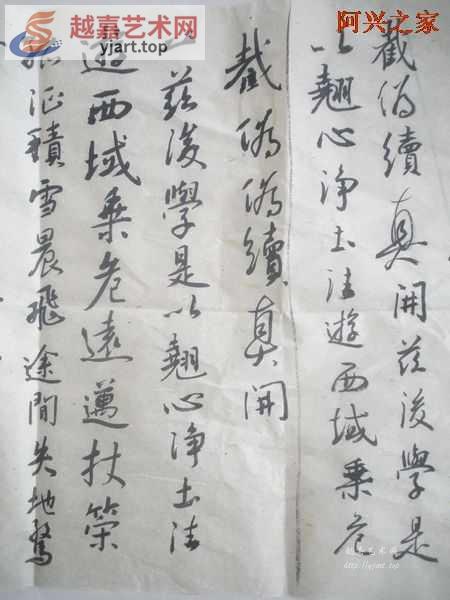 越嘉艺术网
yjart.top
阿兴之家
截偽續真開茲後學是
以翹心净土往遊西域乘危
截偽偽續真開
茲後學是以翹心净土往
遊西域乘危遠邁杖策
孤征積雪晨飛途間失地驚
越嘉艺术网
http://yjart.top